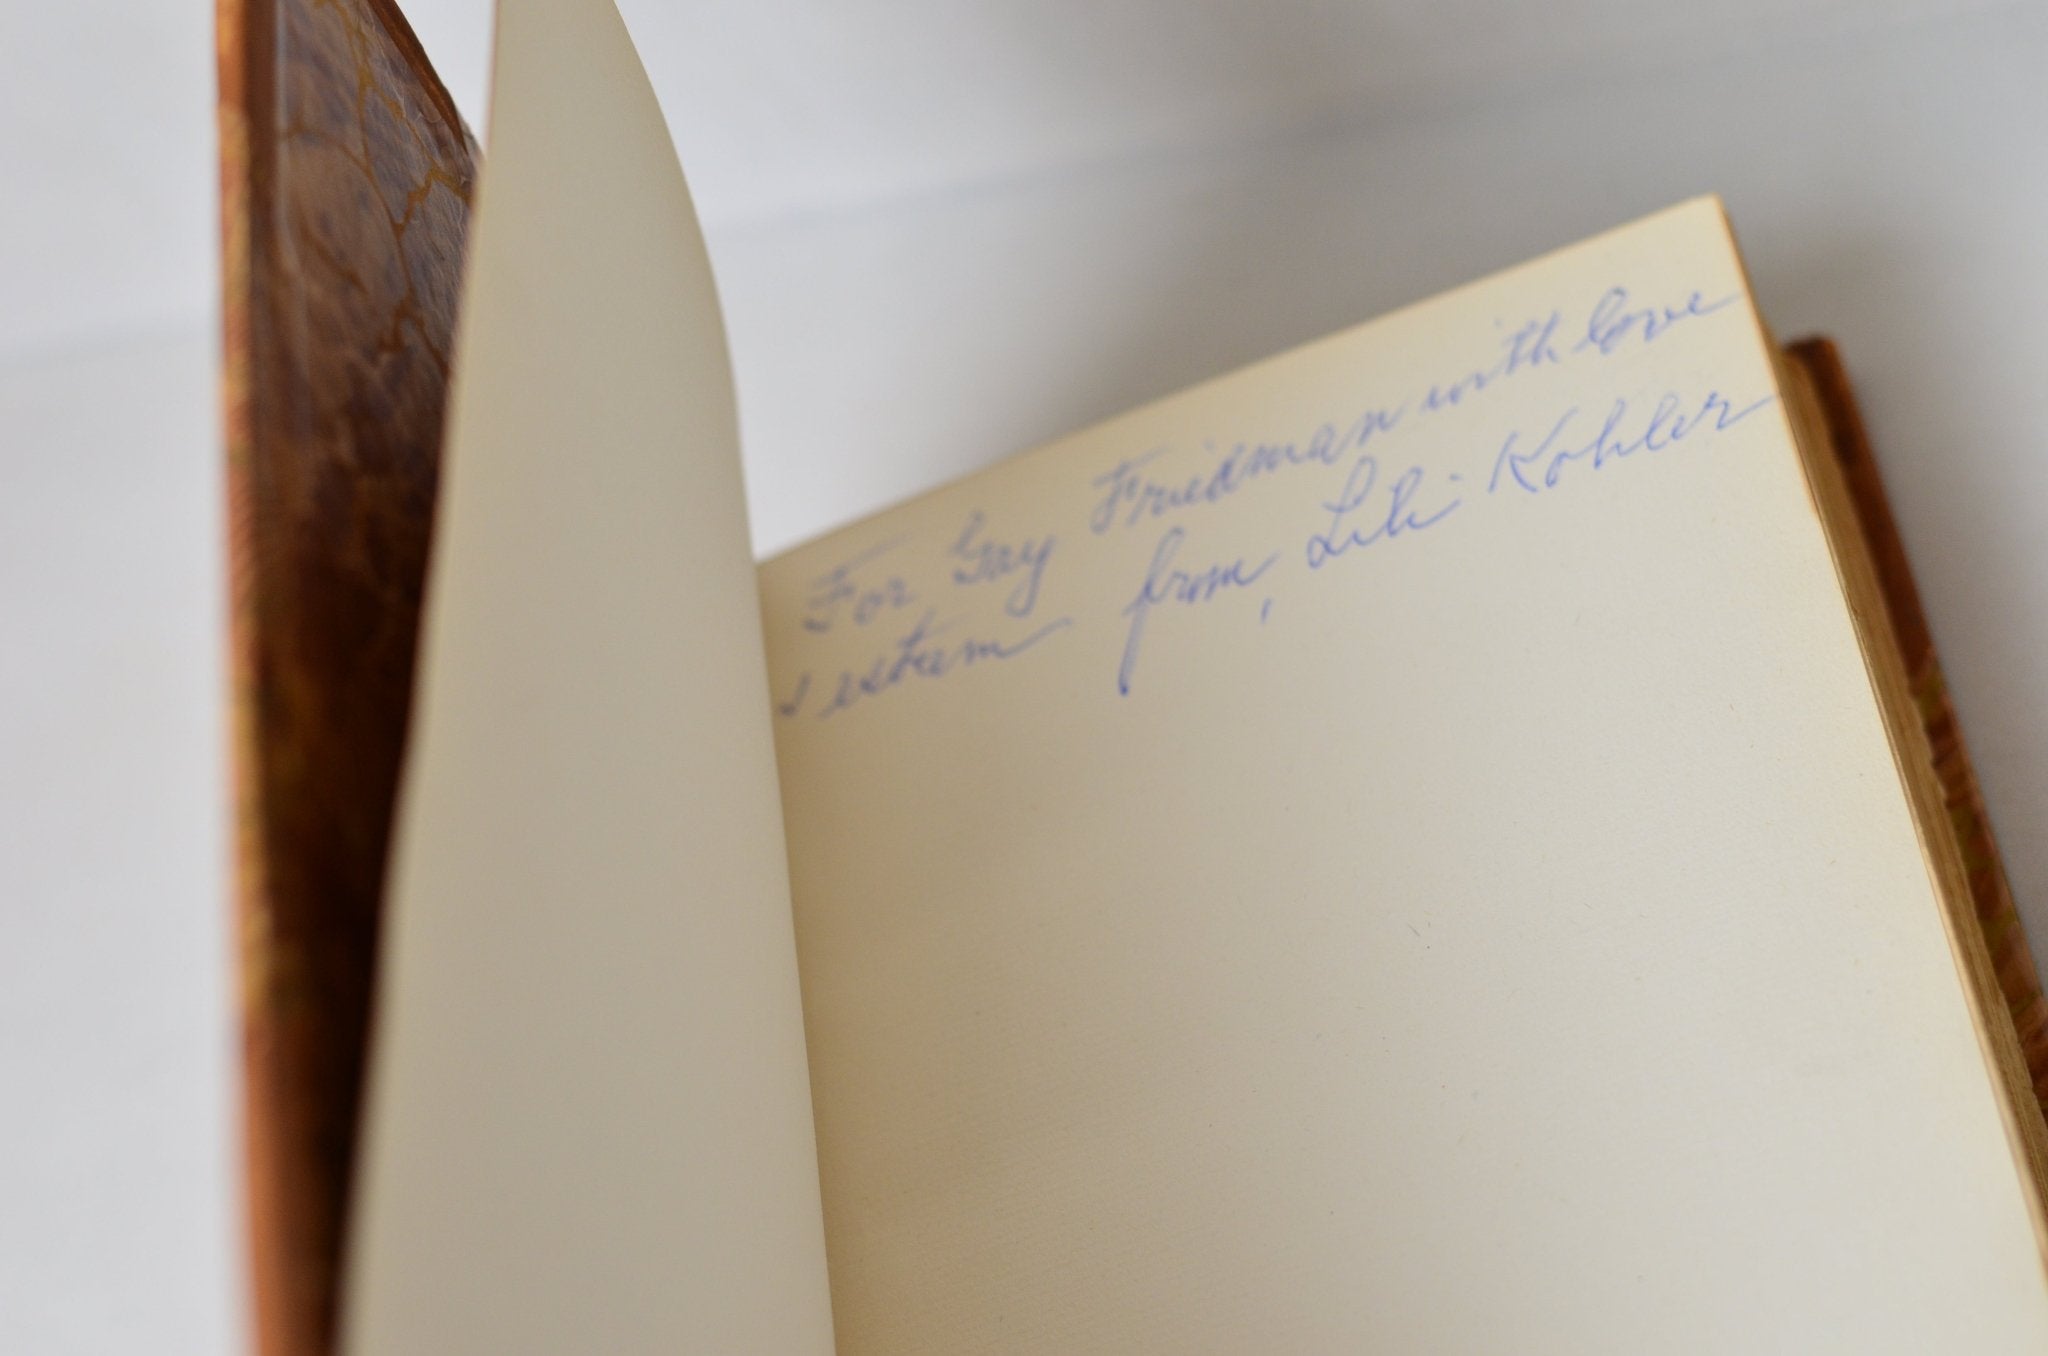 For Gay Friedman with love
& esteem from, Lili Kohler